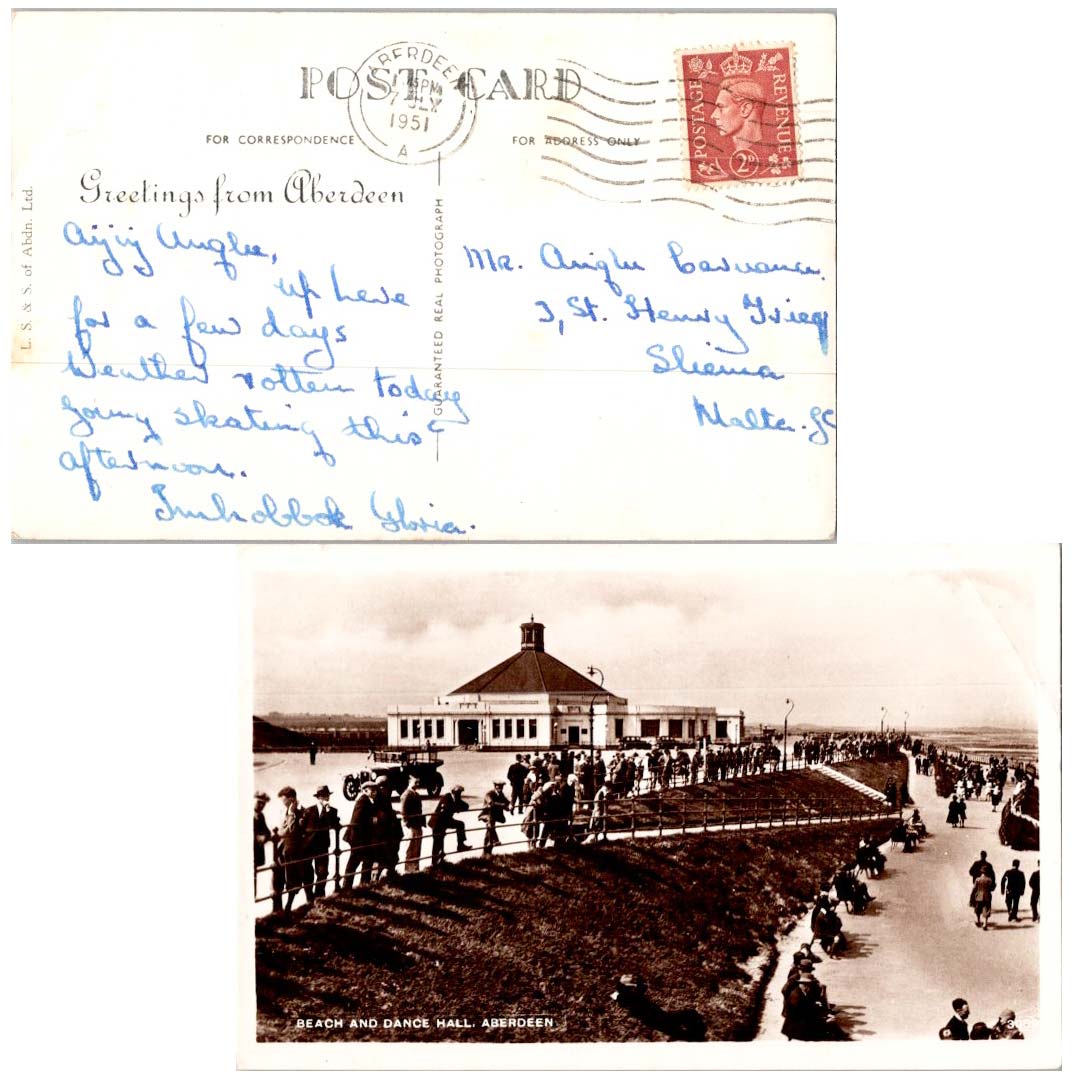 POST CARD
ABERDEEN
PM
7 JLY
1951
A
FOR CORRESPONDENCE
FOR ADDRESS ONLY
POSTAGE
REVENUE
2D
Greetings from Aberdeen
L. S. & S. of Abdn. Ltd.
GUARANTEED REAL PHOTOGRAPH
up here
for a few days
Weather rotten today
going skating this
afternoon.
Inhobbok Gloria.
Mr.
3, St. Henry Trieq
Sliema
Malta. GC
BEACH AND DANCE HALL, ABERDEEN